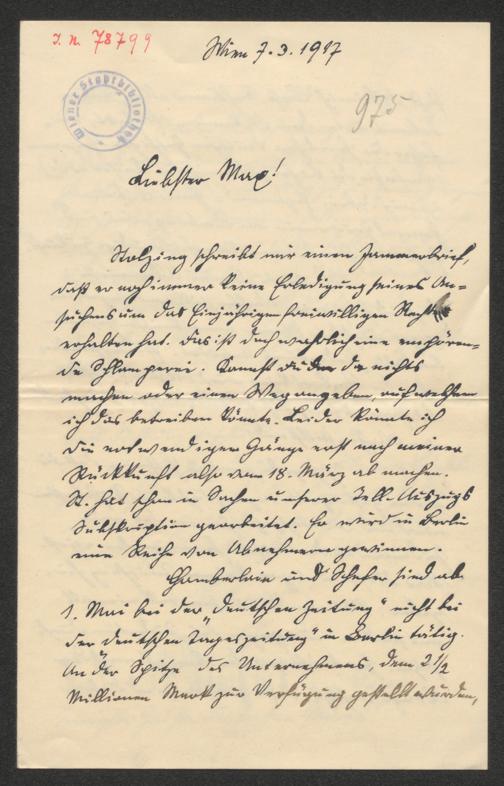 I. N. 78799
Wien 7. 3. 1917
Wiener Stadtbibliothek
975
Liebster Max!
Stolzing schreibt mir einen Jammerbrief,
daß er noch immer keine Erledigung seines An-
suchens um das Einjährigen freiwilligen Recht
erhalten hat. Das ist doch wahrlich eine empören-
de Schlamperei. Kannst du da nichts
machen oder einen Weg angeben, auf welchem
ich das betreiben könnte. Leider könnte ich
die notwendigen Gänge erst nach meiner
Rückkunft also vom 18. März ab machen.
St. hat schon in Sachen unserer Tell-Auszugs
Subskription gearbeitet. Er wird in Berlin
eine Reihe von Abnehmern gewinnen.
Chamberlain und Schefer sind ab
1. Mai bei der „Deutschen Zeitung" nicht bei
der deutschen Tageszeitung" in Berlin tätig.
An der Spitze des Unternehmens, dem 2 1/2
Millionen Mark zur Verfügung gestellt wurden,